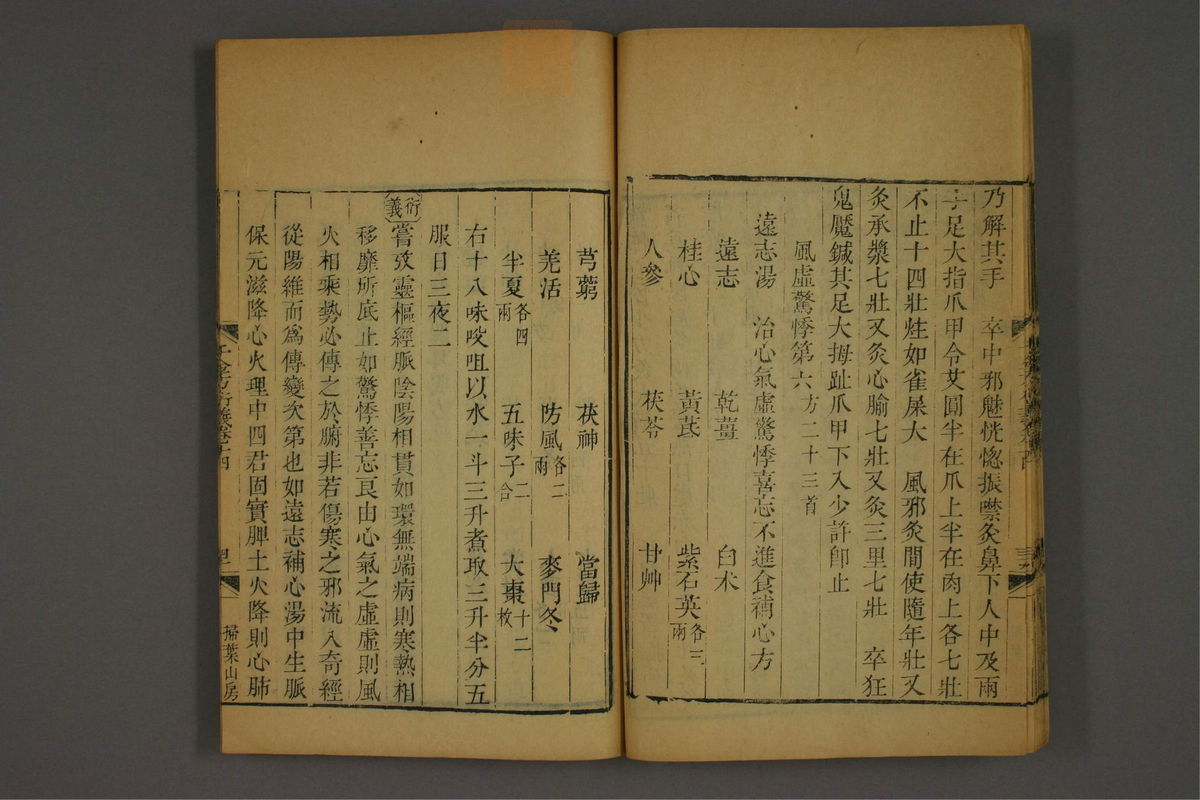 乃解其手　卒中邪魅恍惚振噤灸鼻下人中及兩
手足大指爪甲令艾圓半在爪上半在肉上各七壯
不止十四壯炷如雀屎大　風邪灸間使隨年壯又
灸承漿七壯又灸心腧七壯又灸三里七壯　卒狂
鬼魘鍼其足大拇趾爪甲下入少許卽止
風虛驚悸第六方二十三首
遠志湯　治心氣虛驚悸喜忘不進食補心方
遠志　乾薑　白朮
桂心　黃芪　紫石英各三兩
人參　茯苓　甘艸
芎藭　茯神　當歸
羌活　防風各二兩　麥門冬
半夏各四兩　五味子二合　大棗十二枚
右十八味㕮咀以水一斗三升煮取三升半分五
服日三夜二
衍義　嘗攷靈樞經脈陰陽相貫如環無端病則寒熱相
移靡所底止如驚悸善忘良由心氣之虛虛則風
火相乘勢必傳之於腑非若傷寒之邪流入奇經
從陽維而爲傳變次第也如遠志補心湯中生脈
保元滋降心火理中四君固實脾土火降則心肺
千金方衍義卷十四
掃葉山房